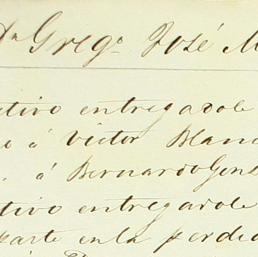 Dn Grego José M
tivo entregadole
o á Victor Blanc
. á Bernardo Gonz
tivo entregadole
parte en la perdi